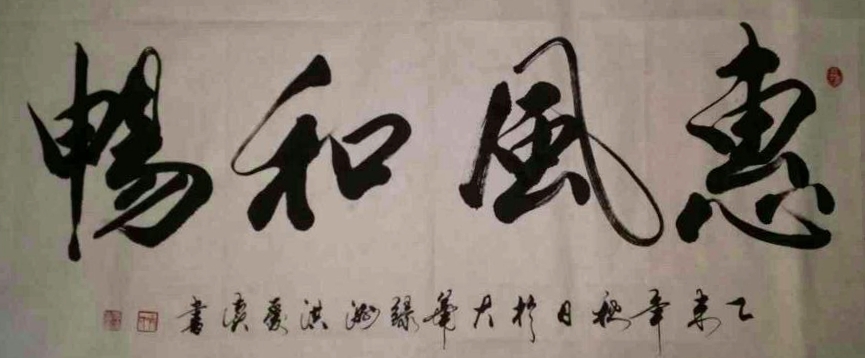 惠風和暢
乙未年秋日於大華緑洲洪夏漢書